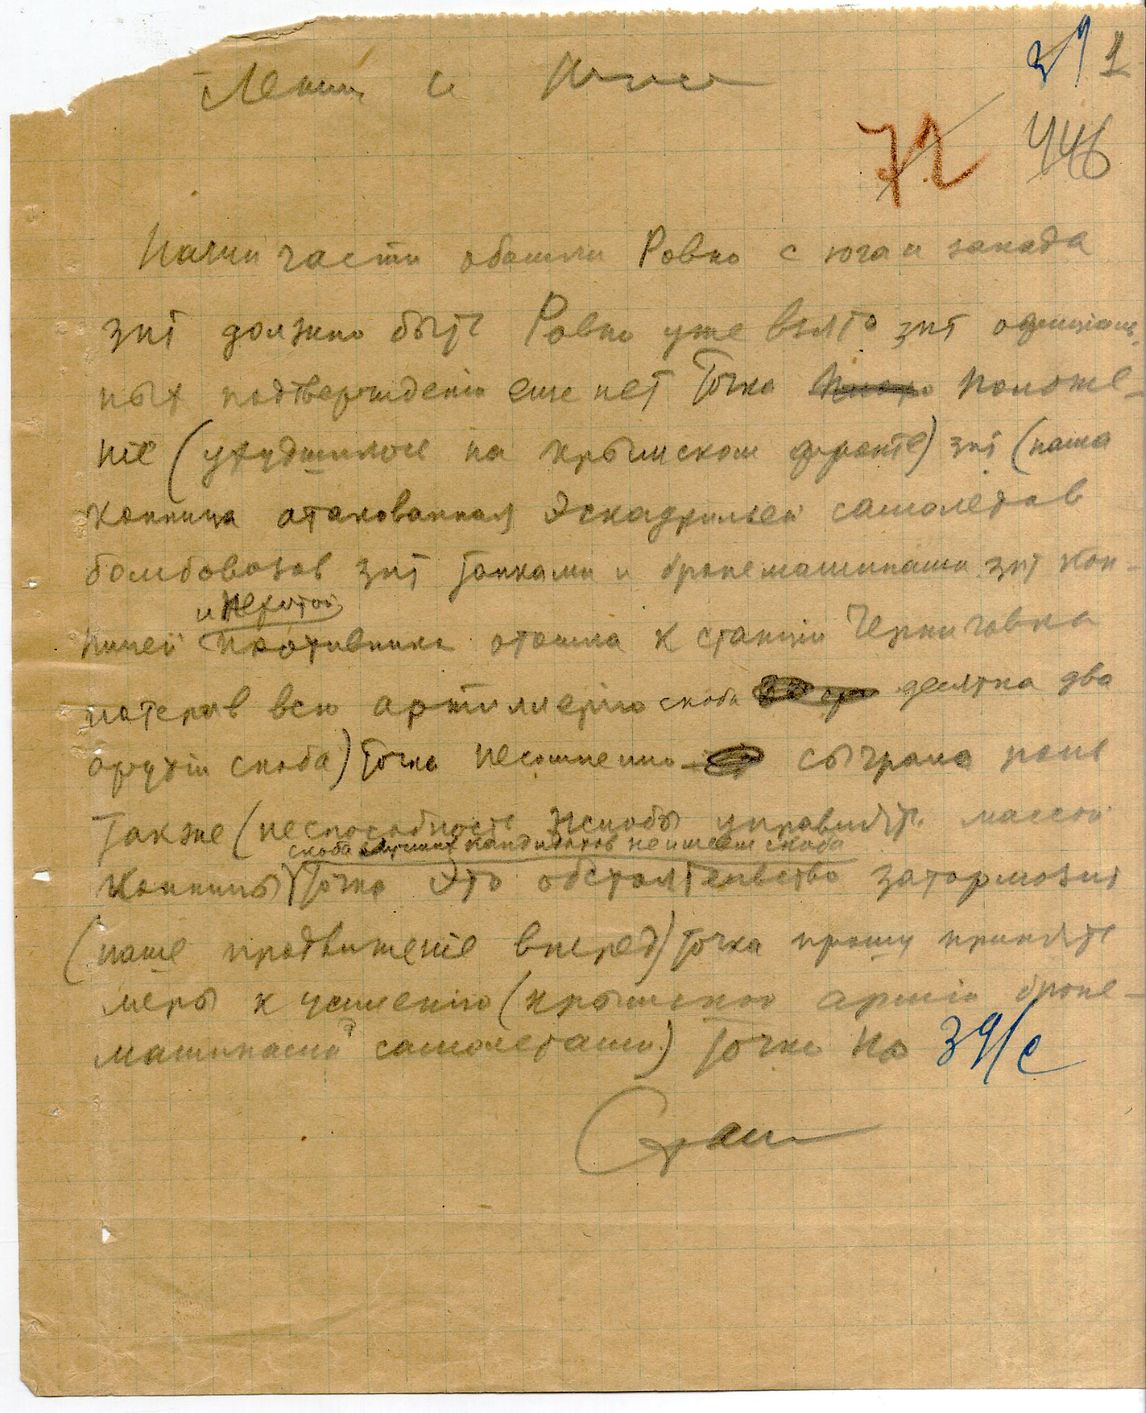 39/ 1
Ленин
72 446
Наши части обошли Ровно с юга и запада
зпт должно быть Ровно уже взято зпт официаль-
ных подтверждений еще нет точка положе-
ние (ухудшилось на крымском фронте) зпт (наша
конница атакованная эскадрильей самолетов
бомбовозов зпт танками и бронемашинами зпт кон-
и пехотой
ницей противника отошла к станции Черниговка
потеряв всю артиллерию скоба десятка два
орудий скоба) точка Несомненно сыграла роль
также (неспособность управлять массой
скоба кандидатов не имеем скоба
конницы) точка Это обстоятельство затормозит
(наше продвижение вперед) точка прошу принять
меры к усилению (крымской армии броне-
машинами и самолетами) точка Нр 39/с